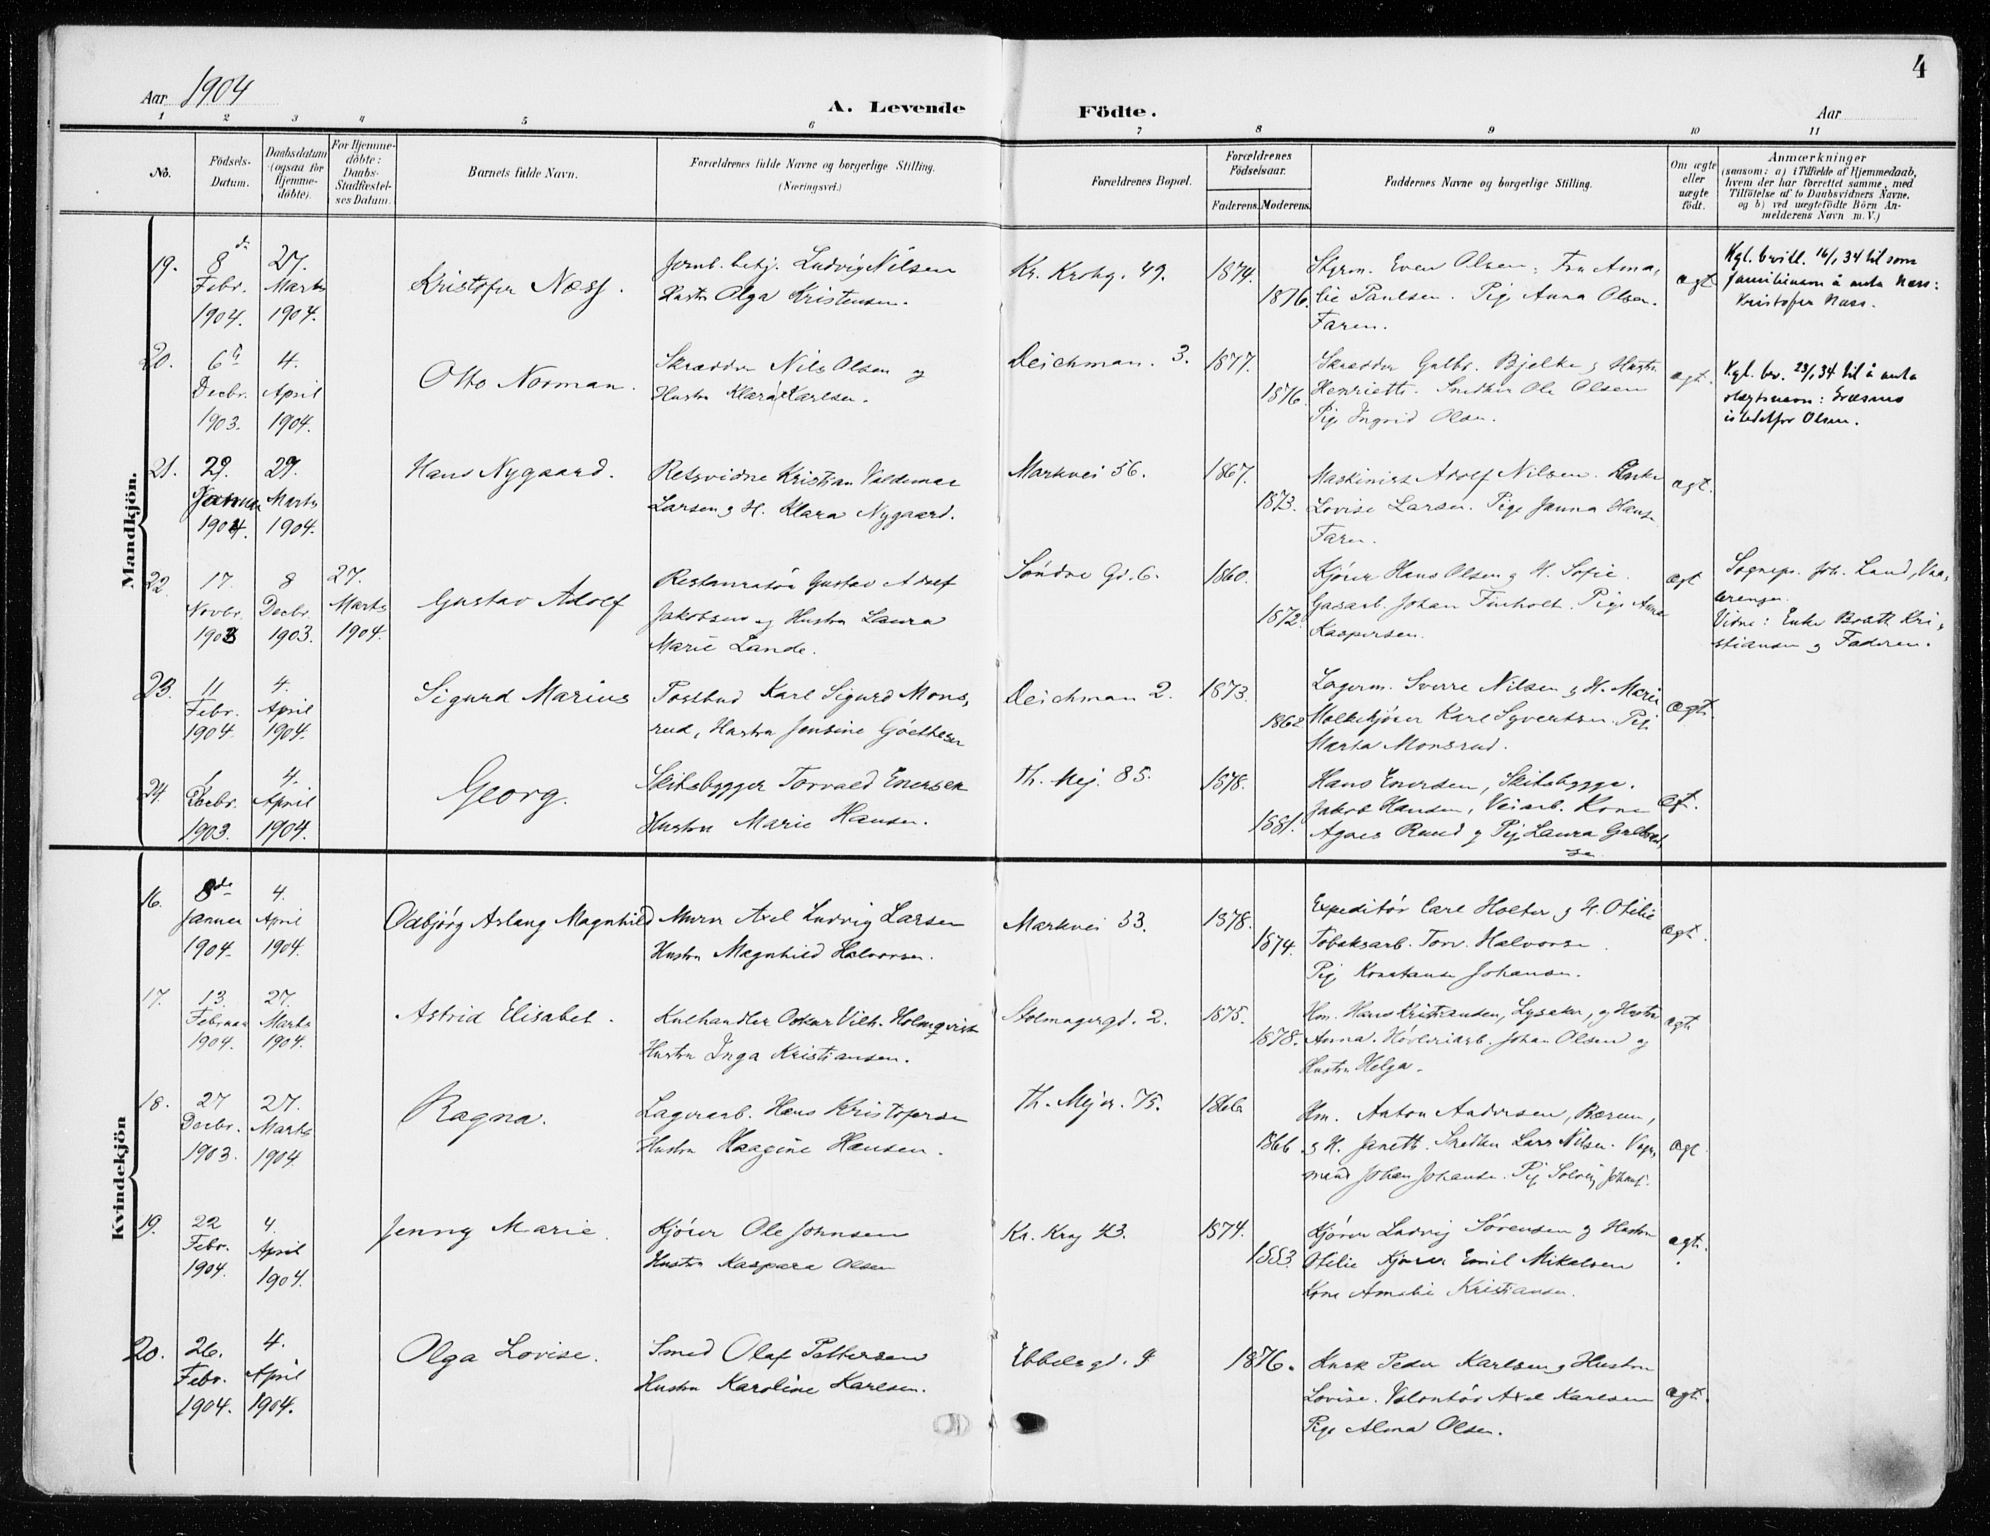 4
Aar 1904
A. Levende Födte.
Aar
1 2 3 4 5 6 7 8 9 10 11
No.
Födsels-
Datum.
Daabsdatum
(ogsaa for
Hjemme-
döbte).
For Hjemme-
döbte:
Daabs-
Stadfæstel-
ses Datum.
Barnets fulde Navn.
Forældrenes fulde Navne og borgerlige Stilling.
(Næringsvei.)
Forældrenes Bopæl.
Forældrenes
Födselsaar.
Faderens. Moderens.
Faddernes Navne og borgerlige Stilling.
Om ægte
eller
uægte
födt.
Anmærkninger
(saasom: a) i Tilfælde af Hjemmedaab,
hvem der har forrettet samme, med
Tilföielse af to Daabsvidners Navne.
og b) ved uægtefödte Börn An-
melderens Navn m. V.)
Mandkjön.
19.
8de
Febr.
1904.
27.
Marts
1904.
Kristofer Næss.
Jernb. betj. Ludvig Nilsen
Hustru Olga Kristensen.
Kr. Krohg. 49.
1874.
1876.
Styrm. Even Olsen. Fru Ama,
lie Paulsen. Pige Anna Olsen.
Faren.
ægt
Kgl. bevill. 16/1 34 til som
familienavn å anta Næss:
Kristofer Næss.
20.
6te
Decbr.
1903.
4.
April
1904.
Otto Norman.
Skrædder Nils Olsen og
Hustru Klara Karlsen.
Deichman. 3.
1877.
1876.
Skrædder Gulbr. Bjelke og Hustru
Henriette. Snedker Ole Olsen
Pige Ingrid Olsen.
ægt.
Kgl. bev. 23/1 34 til å anta
slegtsnavn:
istedetfor Olsen.
21.
29.
Januar
1904.
29.
Marts
1904.
Hans Nygaard.
Retsvidne Kristian Valdemar
Larsen og H. Klara Nygaard.
Markvei 56.
1867.
1873.
Maskinist Adolf Nilsen.
Lovise Larsen. Pige Janna Hansen
Faren.
ægt.
22.
17.
Novbr.
1903
8
Decbr.
1903.
27.
Marts
1904.
Gustav Adolf
Restauratør Gustav Adolf
Jakobsen og Hustru Laura
Marie Lande.
Söndre Gd. 6.
1860.
1872.
Kjører Hans Olsen og H. Sofie.
Gasarb. Johan Finholt. Pige Anna
Kaspersen.
ægt
Sognepr. Joh. Lund, Vaa,
lerengen.
Vidne: Enke Bratt Kri,
stiansen og Faderen.
23.
11
Febr.
1904.
4.
April
1904.
Sigurd Marius
Postbud Karl Sigurd Mons,
rud, Hustru Jensine Göethesen
Deichman 2.
1873.
1862
Lagerm. Sverre Nilsen og H. Marie
Melkekjører Karl Syvertsen. Pige
Marta Monsrud.
ægt.
24.
1
Decbr.
1903.
4.
April
1904.
Georg.
Skibsbygger Torvald Enersen
Hustru Marie Hansen.
Th. Mej. 85.
1878.
1881.
Hans Enersen, Skibsbygge.
Jakob Hansen, Veiarb. Kone
Agnes Ruud og Pige Laura Gulbrand,
sen.
æt.
Kvindekjön
16.
8de
Januar
1904.
4.
April
1904.
Odbjörg Aslaug Magnhild
Murer Axel Ludvig Larsen
Hustru Magnhild Halvorsen.
Markvei 33.
1878.
1874.
Expeditör Carl Holter og H. Otilie
Tobaksarb. Torv. Halvorsen.
Pige Konstanse Johansen.
ægt.
17.
13.
Februar
1904.
27.
Marts
1904.
Astrid Elisabet.
Kulhandler Oskar Vilh. Holmqvist
Hustru Inga Kristiansen.
Stolmagergd. 2.
1875.
1878.
Hm. Hans Kristiansen, Lysaker, og Hustru
Anna. Høvleriarb. Johan Olsen og
Hustru Helga.
ægt.
18.
27
Decbr.
1903.
27.
Marts
1904.
Ragna.
Lagerarb. Hans Kristofersen
Hustru Haagine Hansen.
Th. Mejer. 75.
1866.
1866
Hm. Anton Andersen, Bærum,
og H. Janett. Snedker Lars Nilsen. Vogn,
mand Johan Johansen. Pige Solveig Johans.
ægt
19.
22
Febr.
1904.
4.
April
1904.
Jenny Marie.
Kjører Ole Johnsen
Hustru Kaspara Olsen
Kr. Krog 43.
1874.
1883.
Kjører Ludvig Sørensen og Hustru
Otilie Kjører Emil Mikalsen
Kone Amalie Kristiansen.
ægt.
20.
26.
Febr.
1904.
4.
April
1904.
Olga Lovise.
Smed Olaf Pettersen
Hustru Karoline Karlsen.
Ebbelsgd. 4
1876.
Kusk Peder Karlsen og Hustru
Lovise. Volontør Axel Karlsen
Pige Alma Olsen.
ægt.